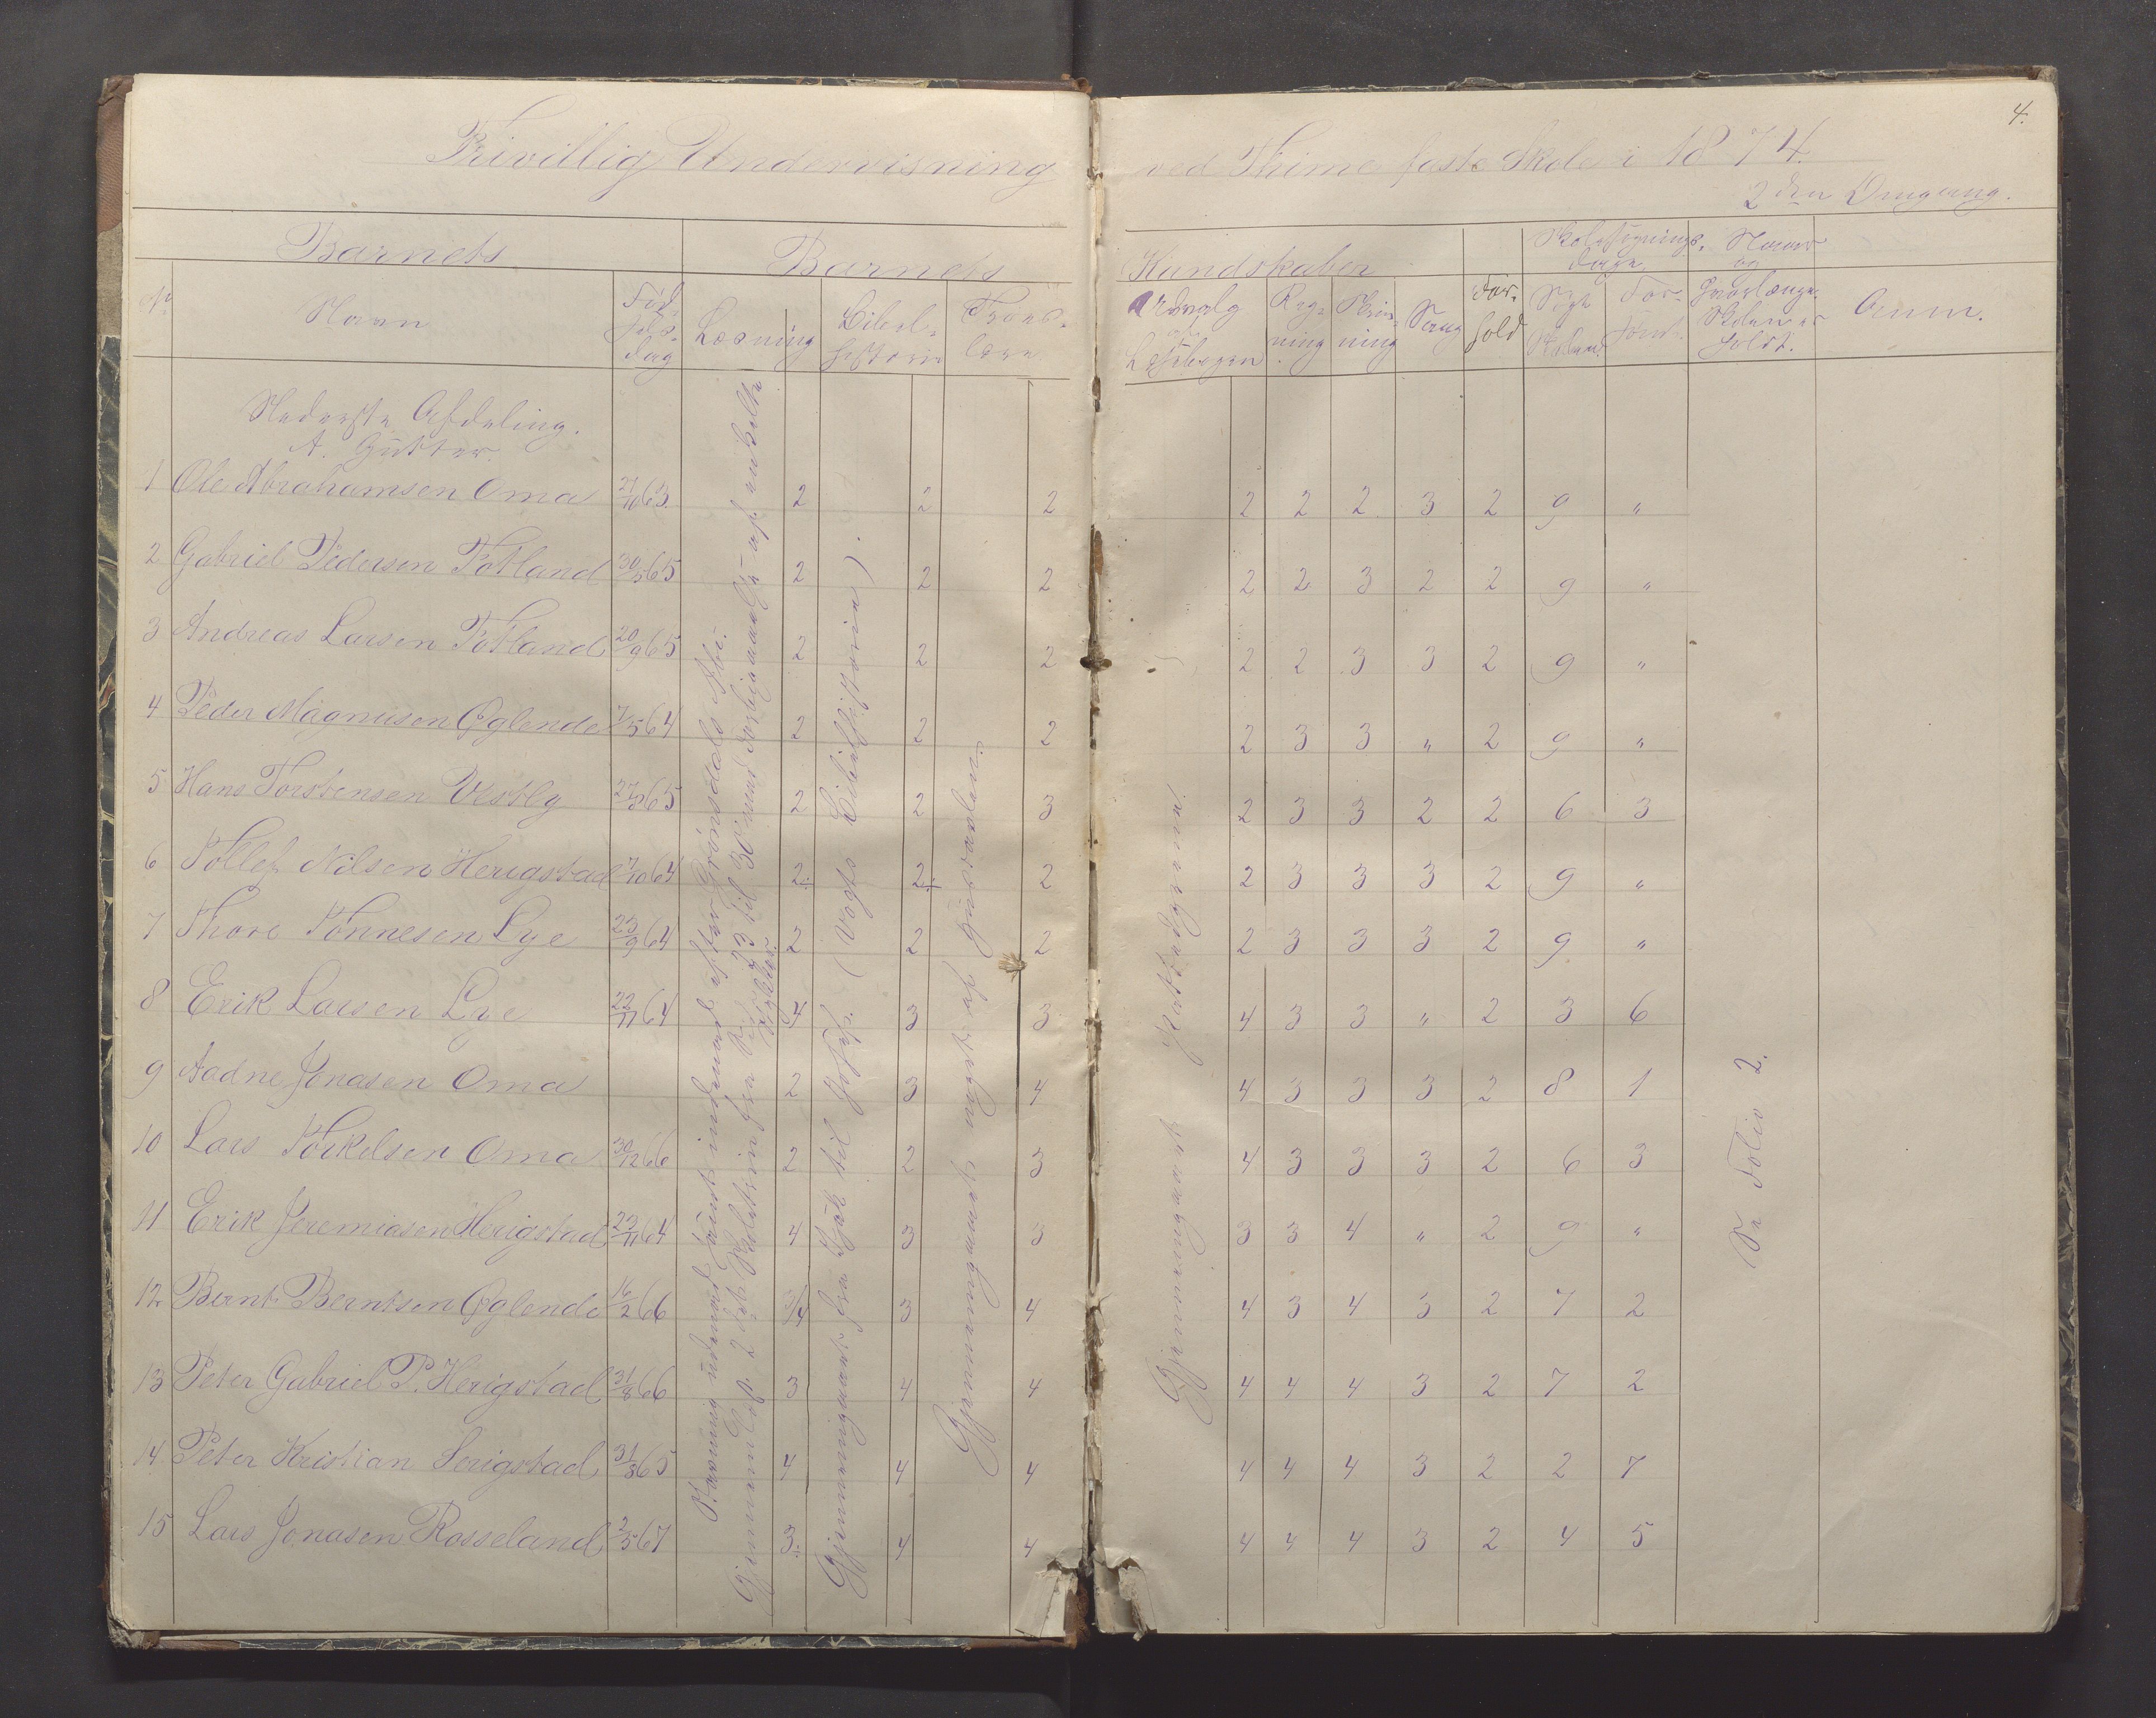 4.
Frivillig Undervisning ved Thime faste Skole i 1874.
2den Omgang.
Barnets Barnets Kundskaber Skolesøgnings- dage Naar og
No Navn Fød- sels- dag Læsning Bibel- historie Troes- lære Udvalg af Læsebogen Reg- ning Skriv- ning Sang For- hold Søgt Skolen For- sømt. Hvorlænge Skolen er holdt. Anm.
Nederste Afdeling.
A. Gutter.
1 Ole Abrahamsen Oma 27/10 63. 2 2 2 2 2 2 3 2 9 "
2 Gabriel Pedersen Fotland 30/5 65 2 2 2 2 2 3 2 2 9 "
3 Andreas Larsen Fotland 20/9 65 2 2 2 2 2 3 3 2 9 "
4 Peder Magnusen Øglende 7/5 64 2 2 2 2 3 3 " 2 9 "
5 Hans Torstensen Vestly 27/8 65 2 2 3 2 3 3 2 2 6 3
6 Tollef Nilsen Herigstad 7/10 64 2÷ 2÷ 2 2 3 3 3 2 9 "
7 Thore Tønnesen Lye 23/9 64 2 2 2 2 3 3 3 2 9 "
8 Erik Larsen Lye 22/11 64 4 3 3 4 3 3 " 2 3 6
9 Aadne Jonasen Oma 2 3 4 4 3 3 3 2 8 1
10 Lars Torkelsen Oma 30/12 66 2 2 3 4 3 3 3 2 6 3
11 Erik Jeremiasen Herigstad 23/11 64 4 3 3 3 3 4 " 2 9 "
12 Bernt Berntsen Øglende 16/2 66 3/4 3 4 4 3 4 3 2 7 2
13 Peter Gabriel P. Herigstad 31/8 66 3 4 4 4 4 4 3 2 7 2
14 Peter Kristian Serigstad 31/3 65 4 4 4 4 4 4 3 2 2 7
15 Lars Jonasen Rosseland 2/5 67 3÷ 4 4 4 4 4 3 2 4 5
Stavning udenad samt indenad efter Grønsdals Abc.
Gjennem Læseb. 2det Skoletrin fra Side 23 til 30 samt
Stykker
Gjennemgaaet fra til Josef. (Vogts Bibelhistorie).
Gjennemgaaet noget af
Gjennemgaaet
Se Folio 2.